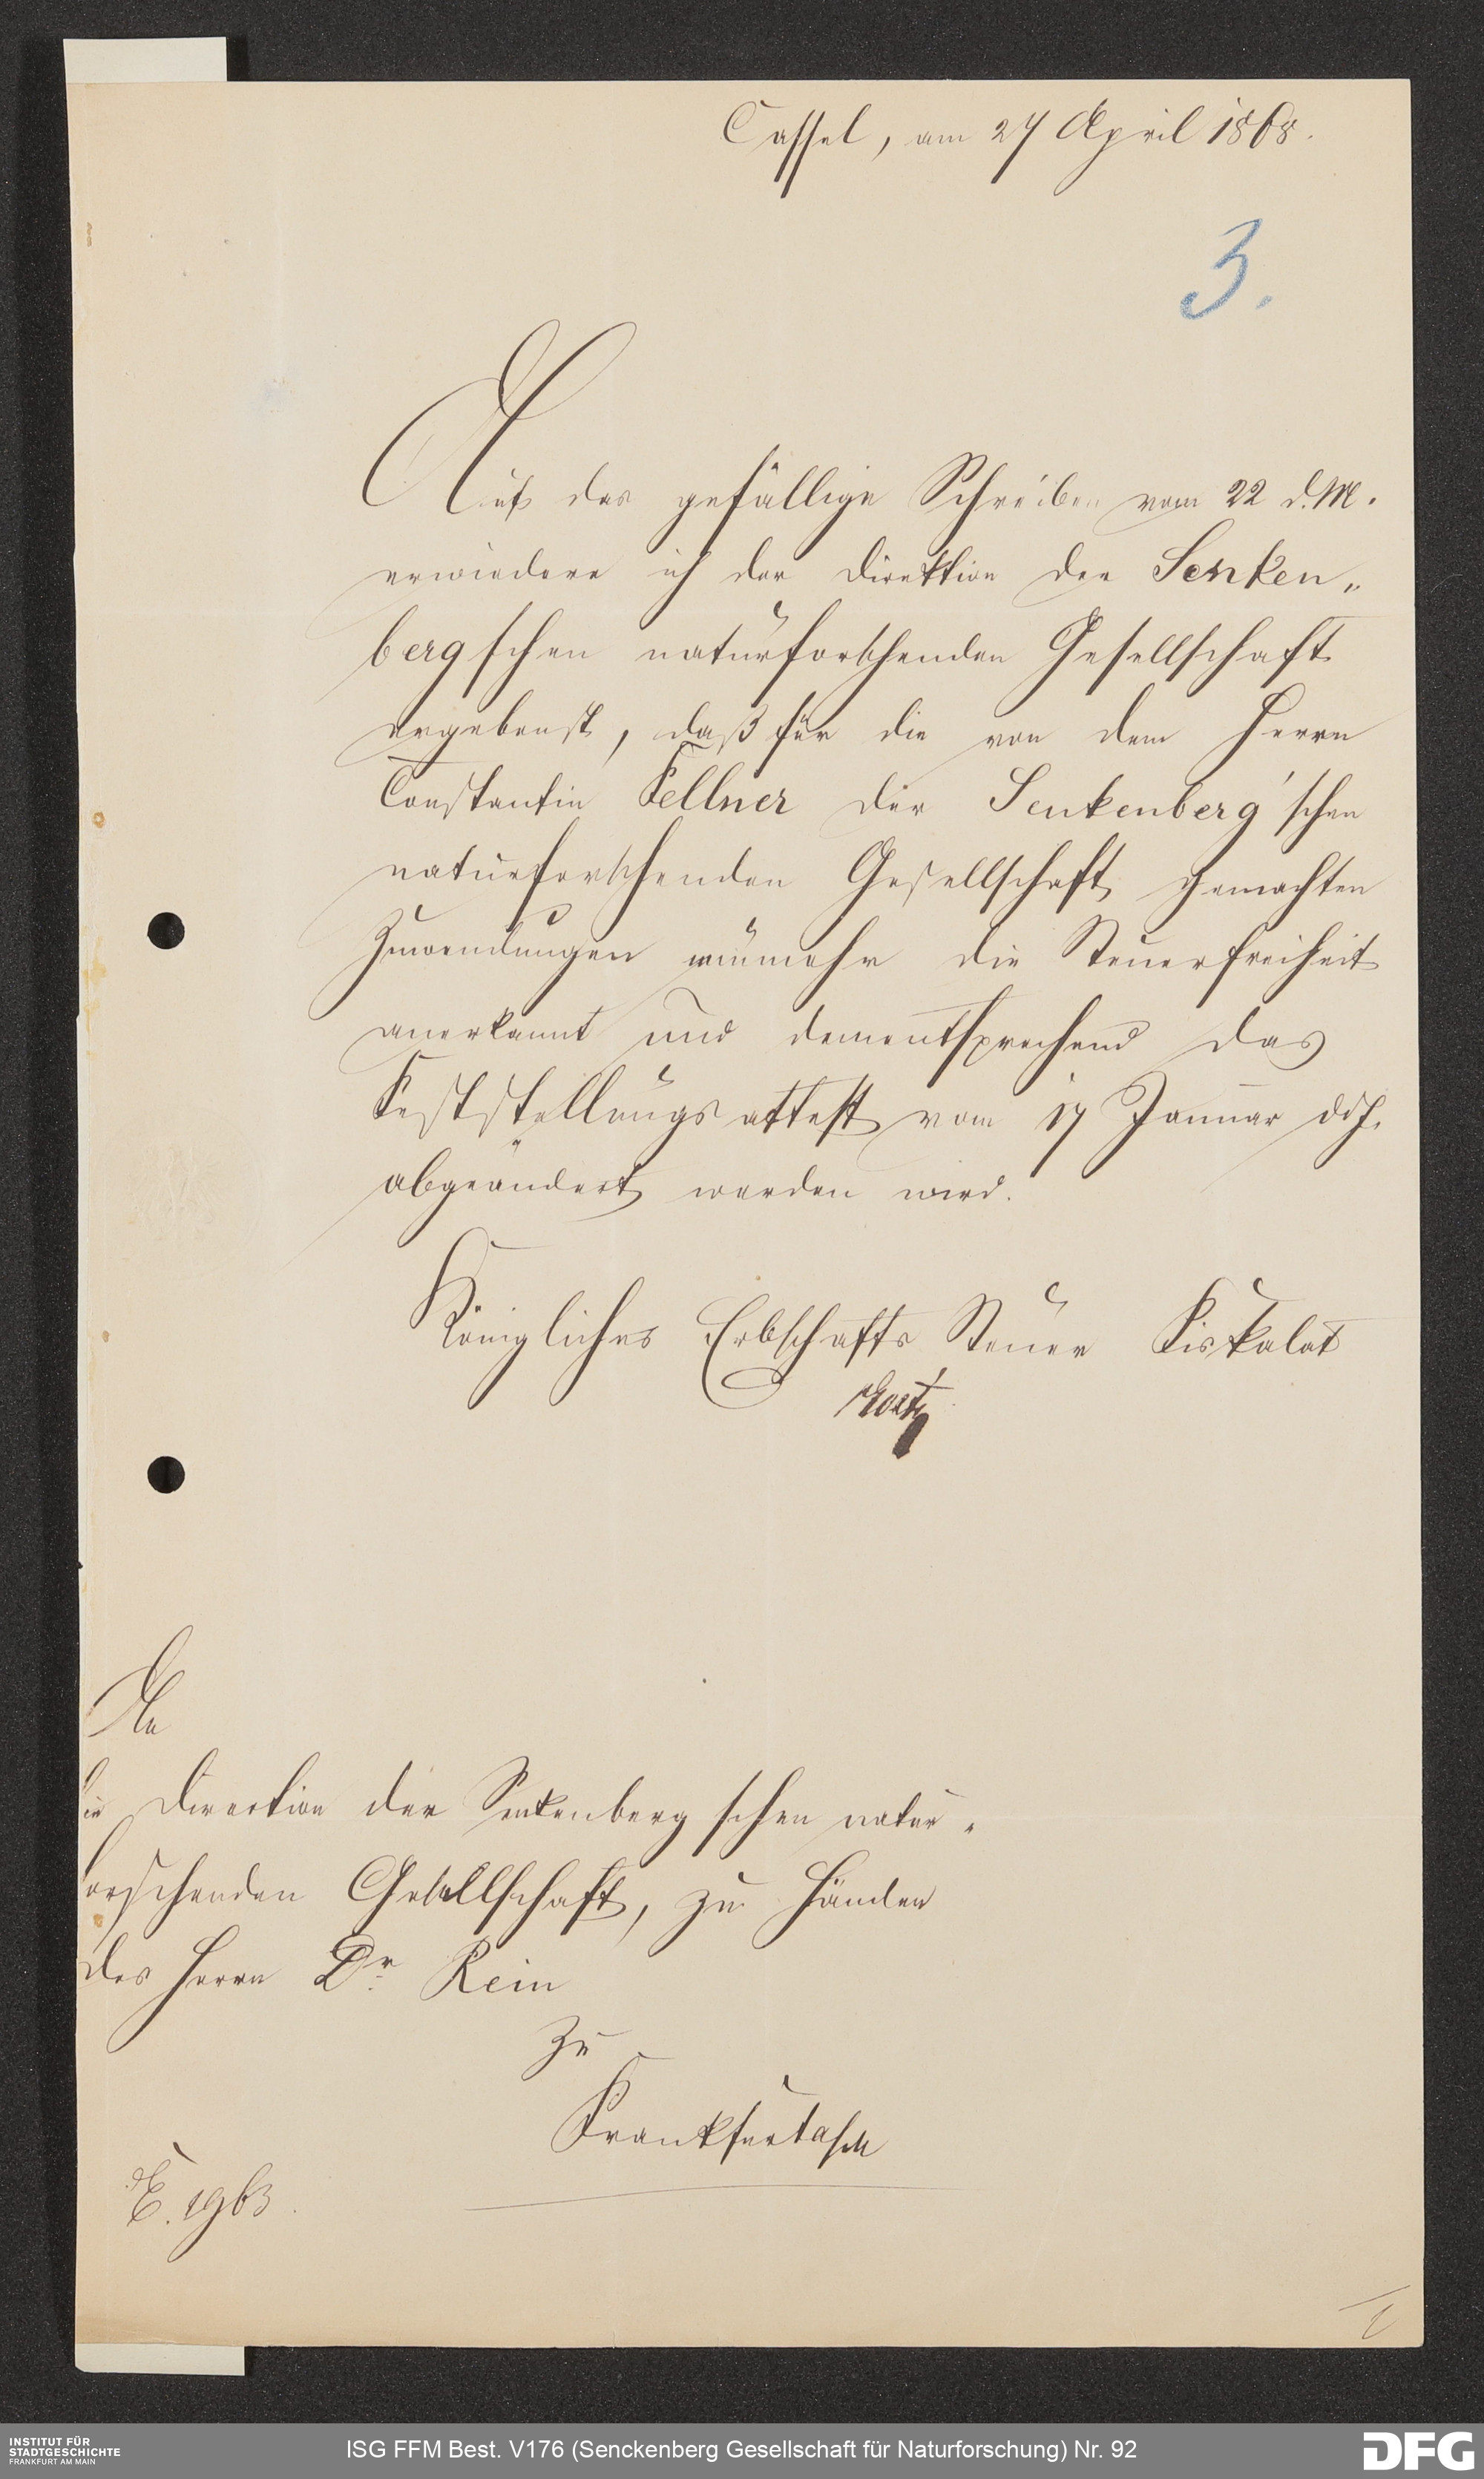 Cassel, am 27 April 1868.
3.
Auf das gefällige Schreiben vom 22 d. M.
erwiedere ich der Direktion der Senken„
bergschen naturforschenden Gesellschaft
ergebenst, daß für die von dem Herrn
Constantin Fellner der Senkenberg'schen
naturforschenden Gesellschaft gemachten
Zuwendungen nunmehr die Steuerfreiheit
anerkannt und dementsprechend das
Feststellungsattest vom 17 Januar d. J.
abgeändert werden wird.
Königliches Erbschafts Steuer Fiskalat
An
die Direction der Senkenbergschen natur„
forschenden Gesellschaft, zu Händen
des Herrn Dr. Rein
zu
Frankfurt a/M
E. 1963.
INSTITUT FÜR
STADTGESCHICHTE
FRANKFURT AM MAIN
ISG FFM Best. V176 (Senckenberg Gesellschaft für Naturforschung) Nr. 92
DFG